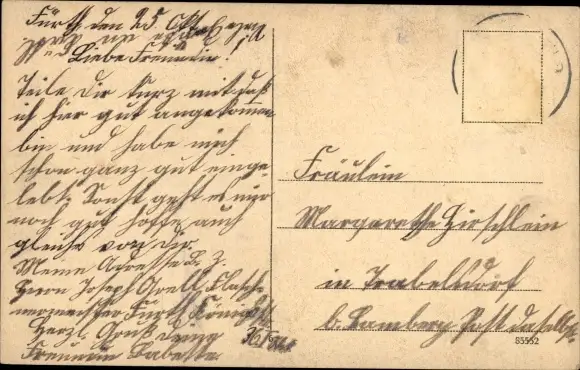 Fürth den 25. Okt.
Liebe Freundin!
Teile Dir kurz mit daß
ich hier gut angekommen
bin und habe mich
schon ganz gut einge-
lebt. Sonst geht es mir
noch gut hoffe auch
gleiches von dir.
Meine Adresse b. z.
Herrn Joseph
Fürth
Herzl. Gruß deine
Freundin Babette
Fräulein
Margarethe Hirschlein
in Trabelsdorf
b. Bamberg Post daselbst
83552